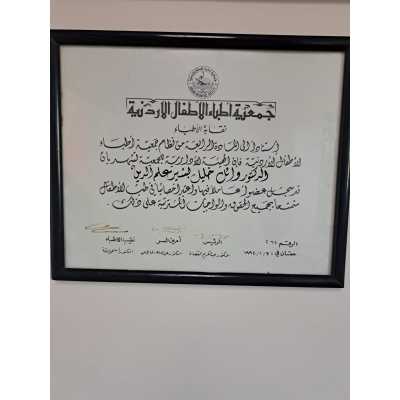 جمعية أطباء الأطفال الأردنية
نقابة الأطباء
استناداً إلى المادة الرابعة من نظام جمعية أطباء
الأطفال الأردنية فان الهيئة الادارية للجمعية تشهد بان
الدكتور وائل خليل بشير علم الدين
قد سجل عضواً عاملاً فيها واعتبر اخصائياً في طب الأطفال
متمتعاً بجميع الحقوق والواجبات المترتبة على ذلك.
الرقم ٢٦١ الرئيس أمين السر نقيب الأطباء
عمان في